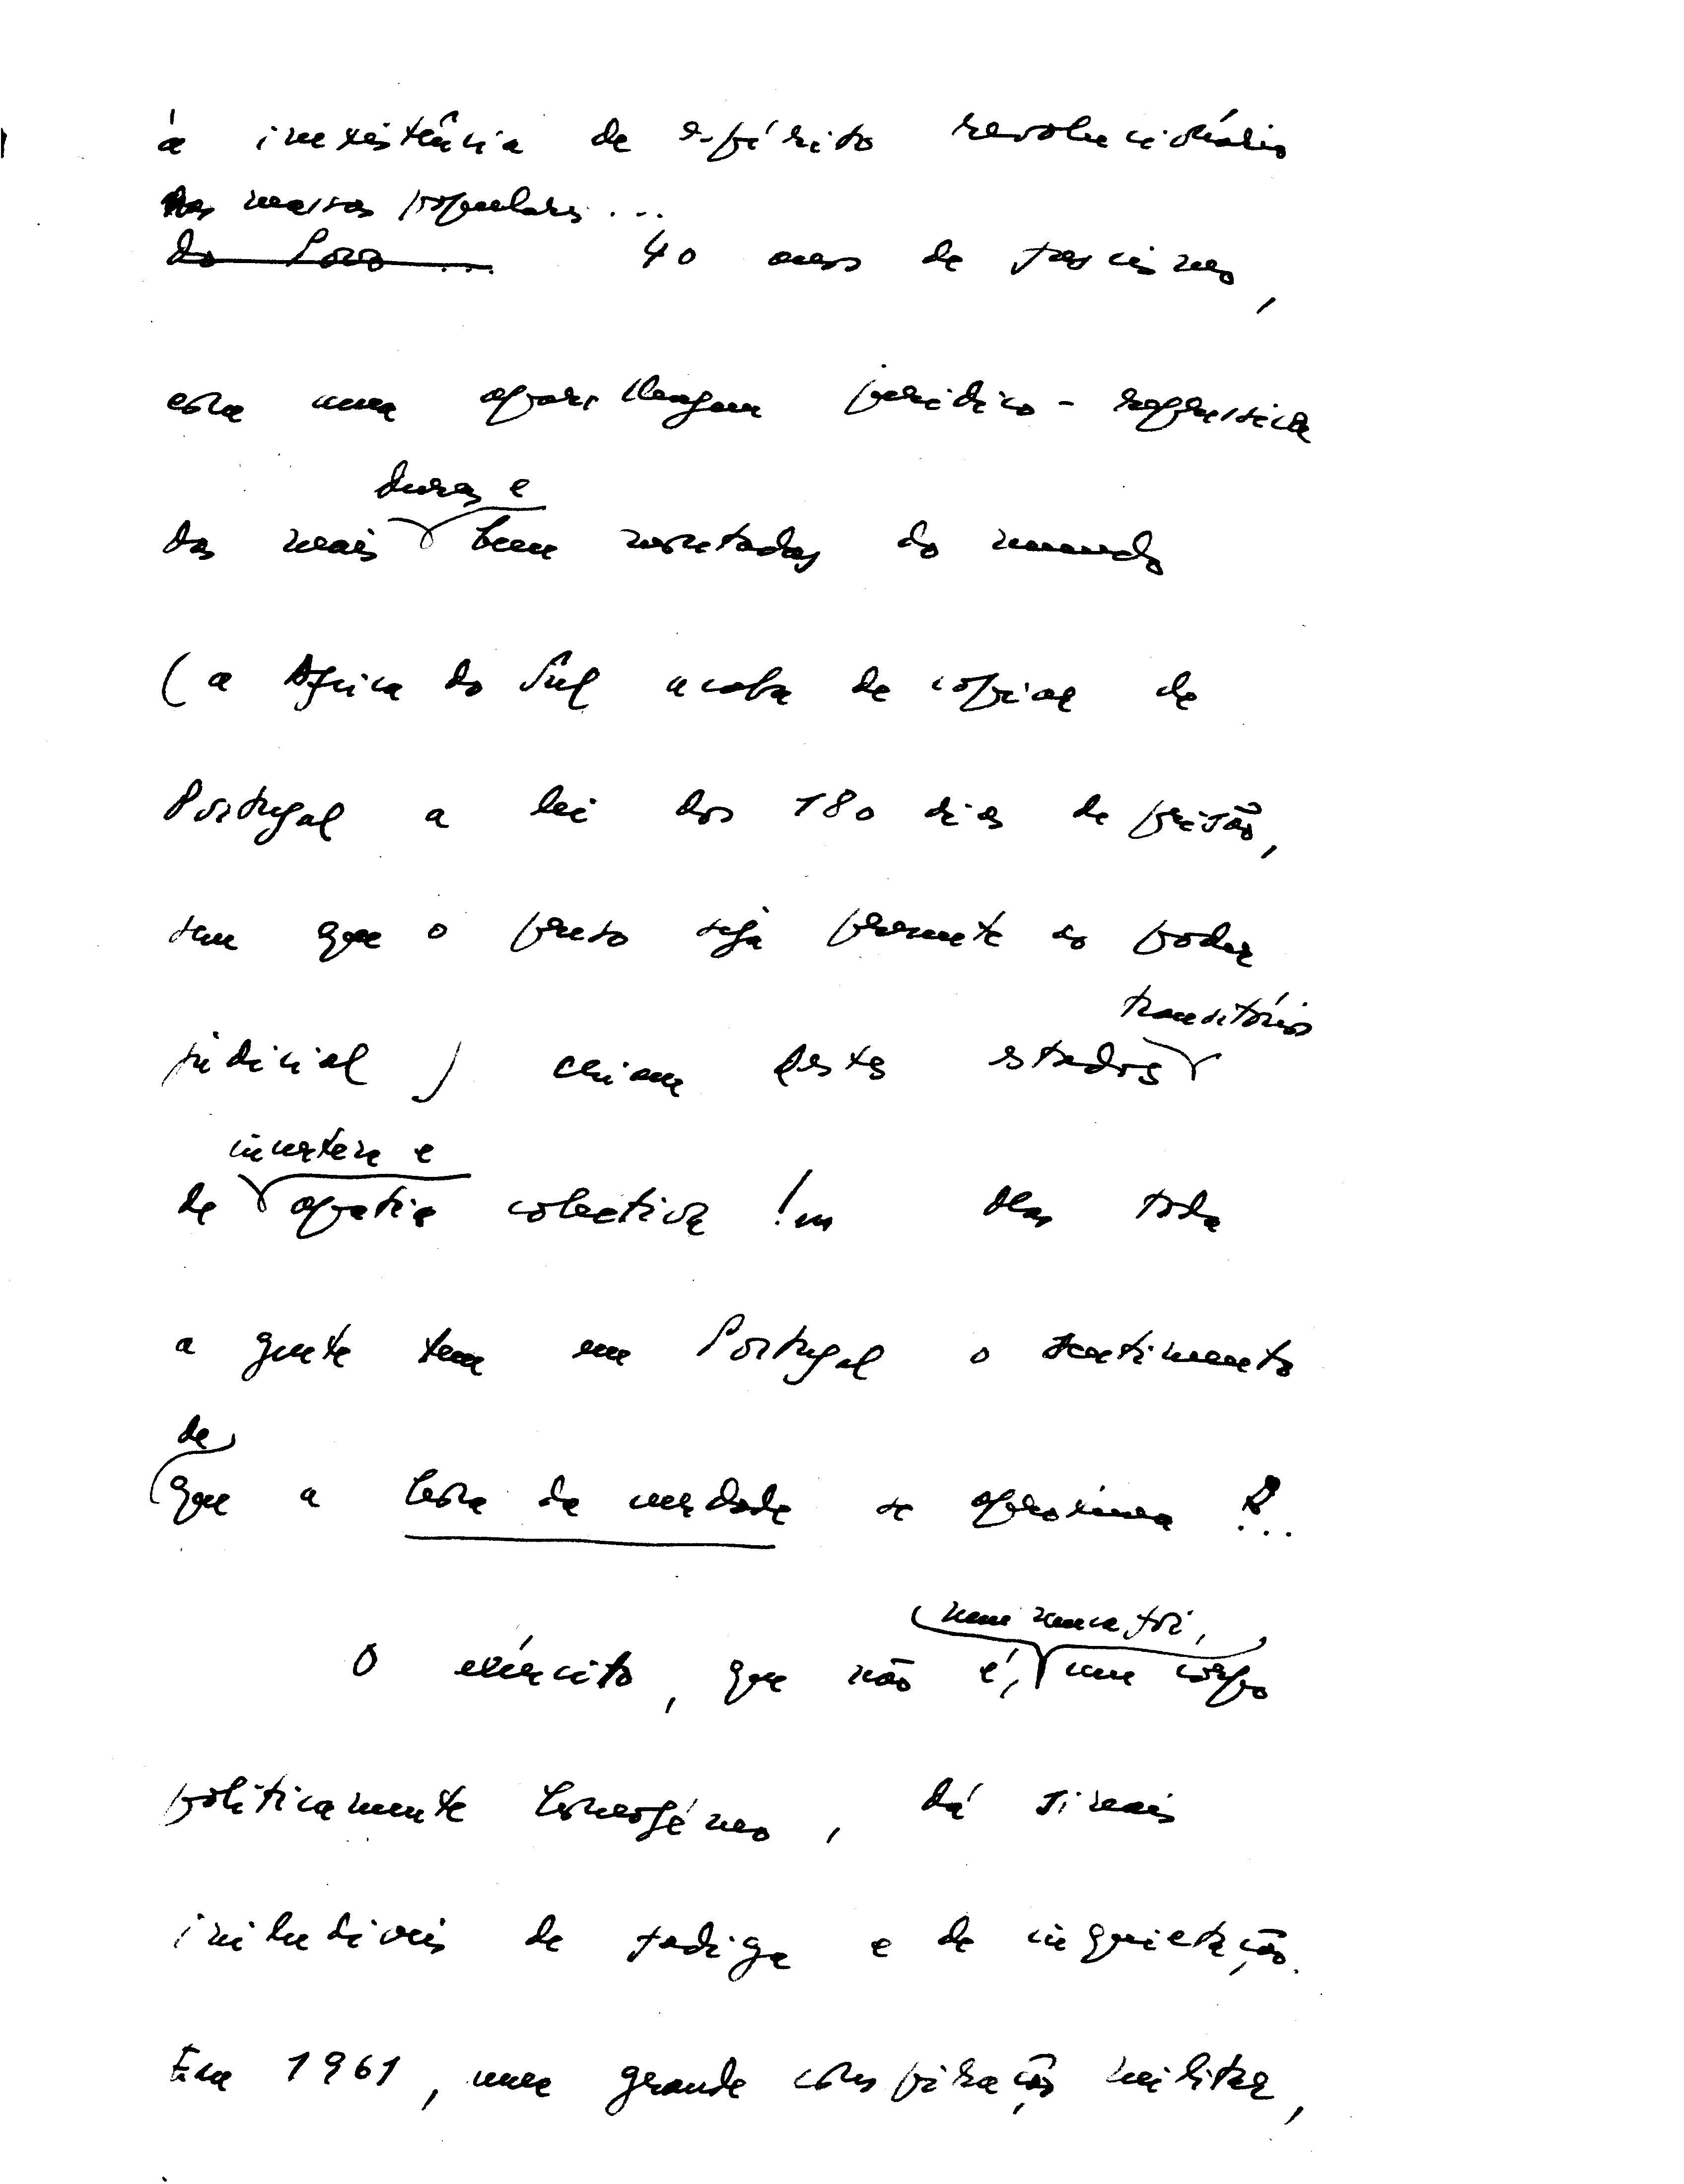 à inexistência de espírito revolucionário
nas massas populares...
do Povo ... 40 anos de fascismo,
com uma aparelhagem jurídico-repressiva
duras e
das mais bem montadas do mundo
(a África do Sul acaba de copiar de
Portugal a lei dos 180 dias de prisão,
sem que o preso seja presente ao poder
transitórios
judicial) criam destes estados
incerteza e
de apatia colectiva!... Mas toda
a gente tem em Portugal o sentimento
de
que a hora da verdade se aproxima
nem nunca foi,
O exército, que não é, um corpo
politicamente homogéneo, dá sinais
iniludíveis de fadiga e de inquietação.
Em 1961, uma grande conspiração militar,